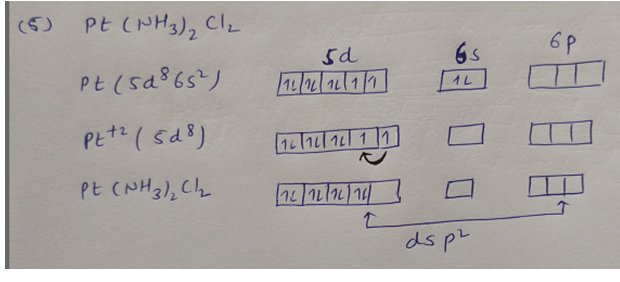 (5) Pt (NH3)2 Cl2
5d 6s 6p
Pt (5d⁸ 6s²) 1L 1L 1L 1 1 1L
Pt⁺² (5d⁸) 1L 1L 1L 1 1
Pt (NH3)2 Cl2 1L 1L 1L 1L
dsp²